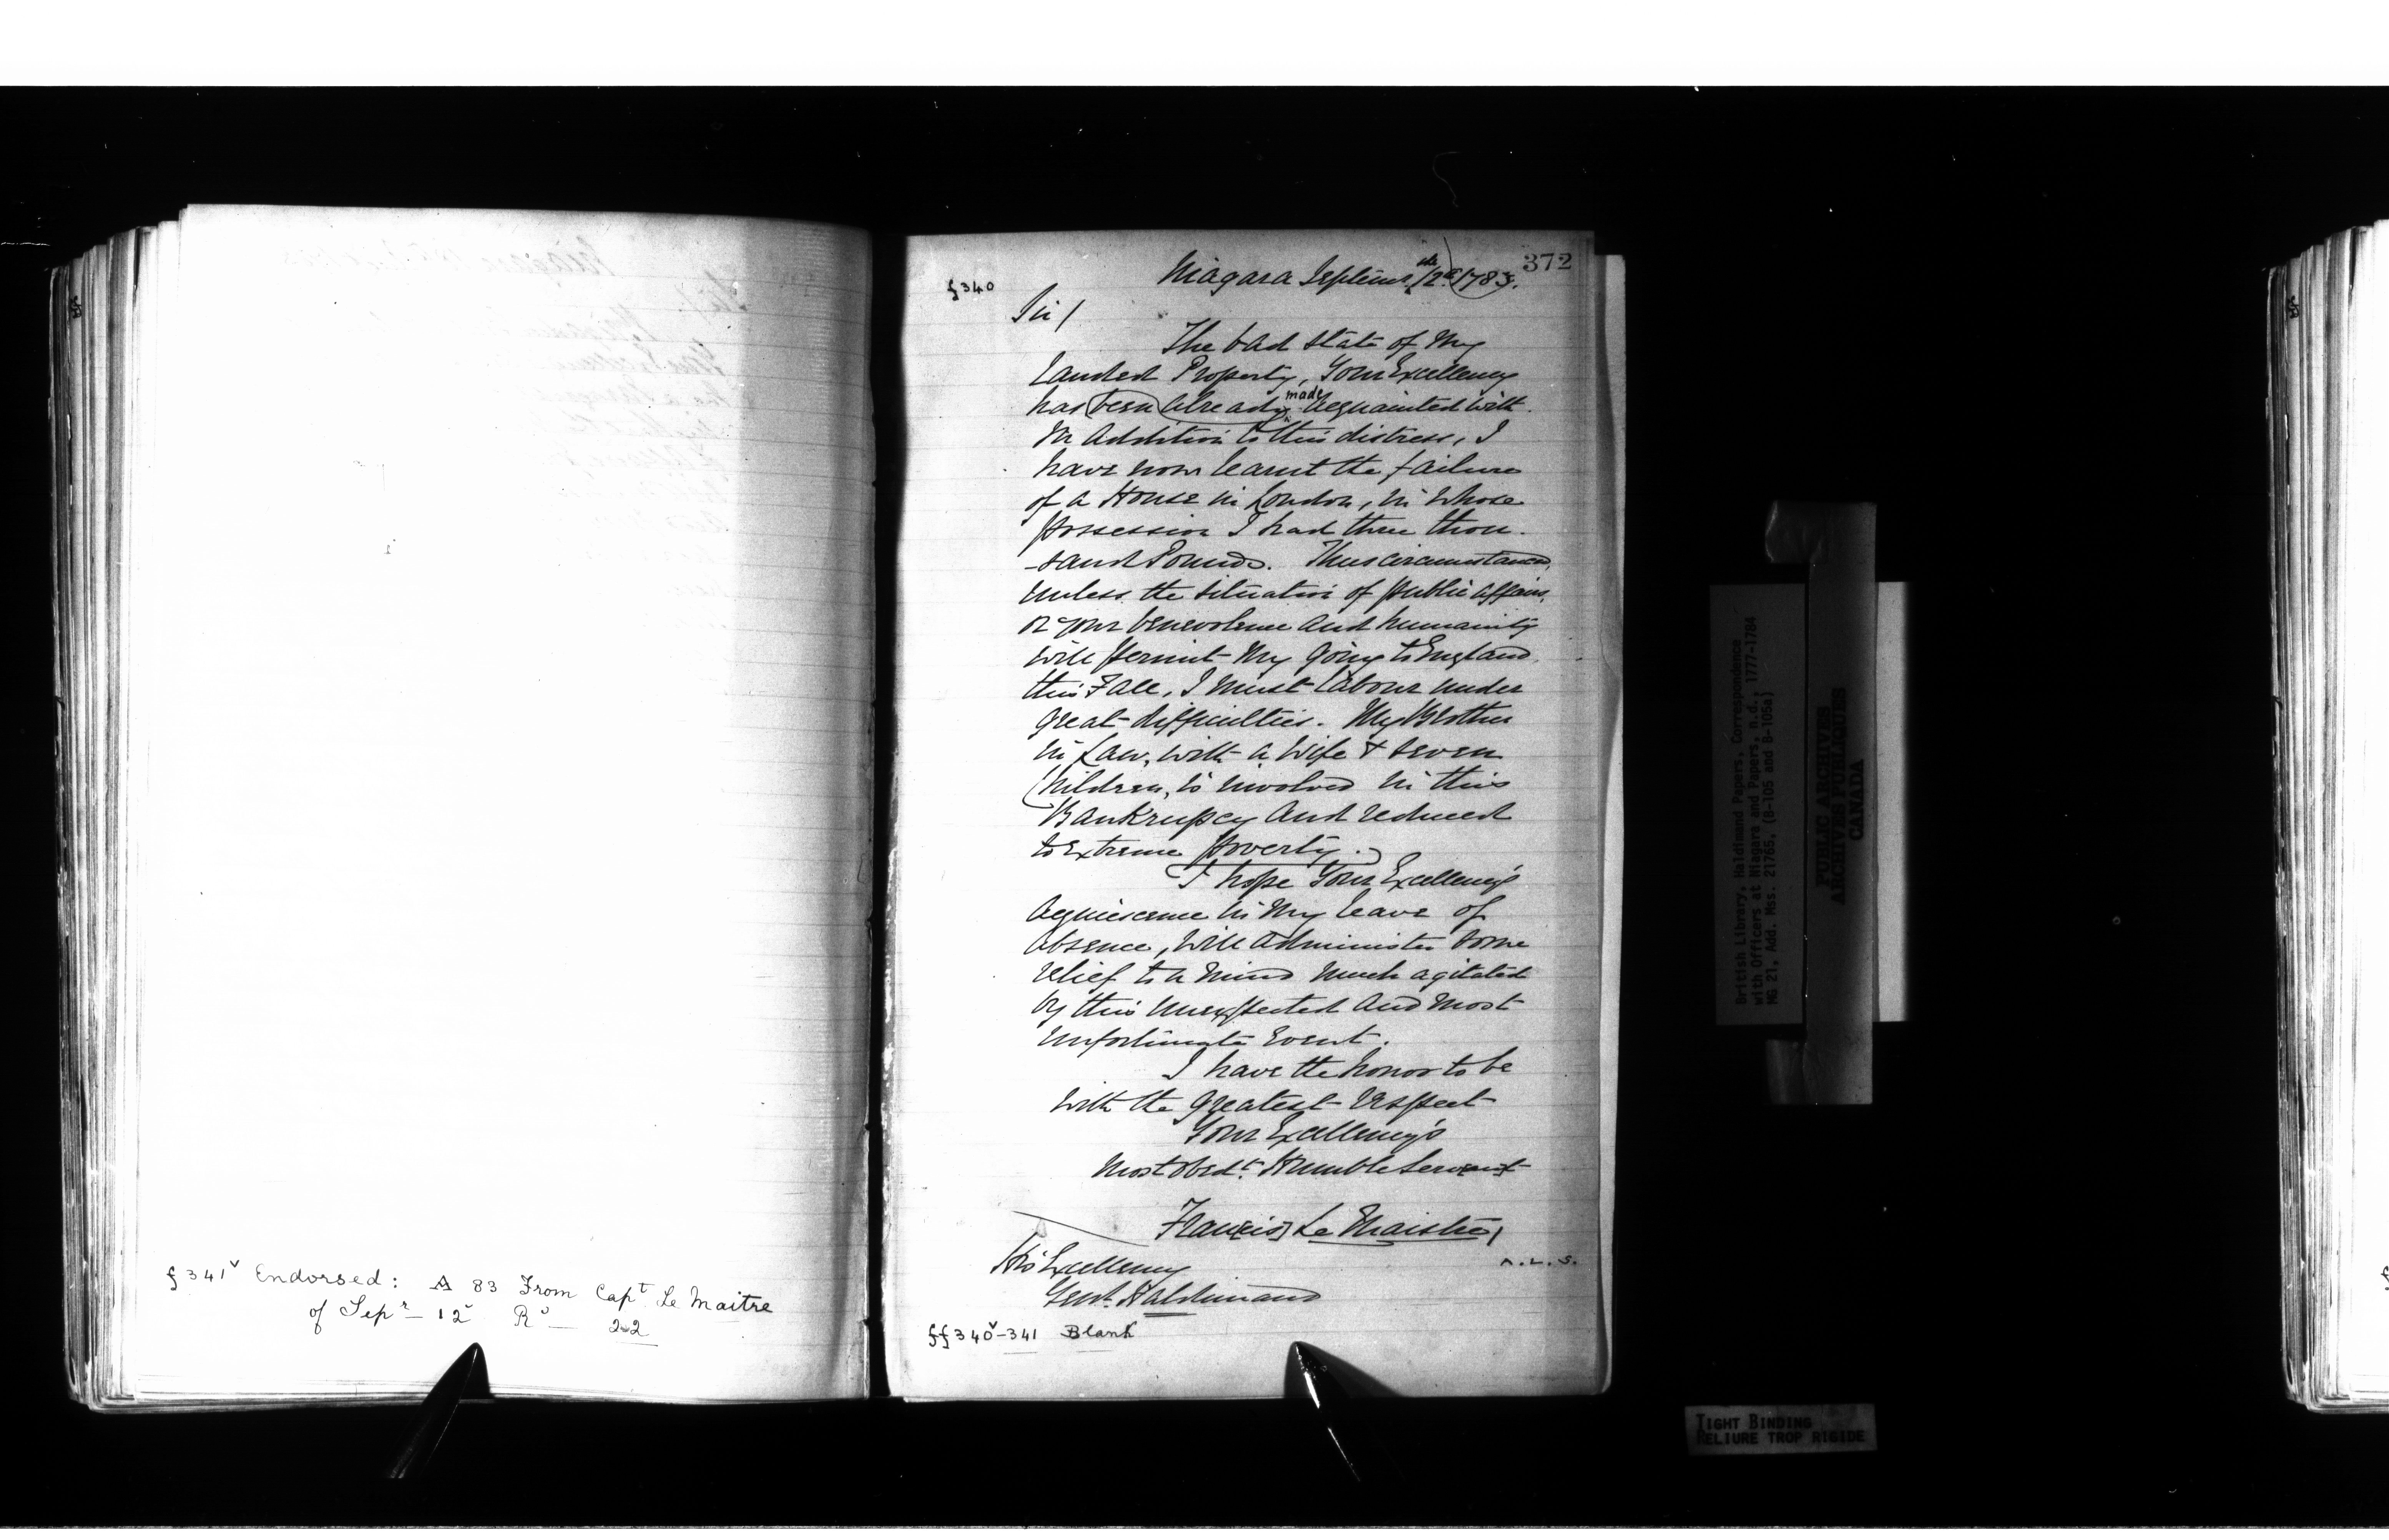 f 341v Endorsed: A 83 From Capt Le Maitre
of Sepr - 12 Rd - 22
372
f 340
Niagara Septemr 12th 1783.
Sir/
The bad state of My
Landed Property, Your Excellency
has been already made acquainted with.
In addition to this distress, I
have now learnt the failure
of a House in London, in whose
possession I had three thou-
-sand Pounds. Thus circumstanced,
unless the situation of public affairs,
or your benevolence and humanity
will permit My going to England
this Fall, I must labour under
great difficulties. My Brother
in Law, with a Wife & seven
Children, is involved in this
Bankrupcy and reduced
to extreme poverty.
I hope Your Excellency's
Acquiescence in My leave of
absence, will administer some
relief to a Mind Much agitated
by this unexpected and Most
unfortunate Event.
I have the honor to be
with the greatest respect
Your Excellency's
Most Obedt. Humble Serv[ant]
Fran[cis] Le Maistre
A.L.S.
His Excellency
Genl. Haldimand
ff 340v-341 Blank
British Library, Haldimand Papers, Correspondence
with Officers at Niagara and Papers, n.d., 1777-1784
MG 21, Add. Mss. 21765, (B-105 and B-105a)
PUBLIC ARCHIVES
ARCHIVES PUBLIQUES
CANADA
TIGHT BINDING
RELIURE TROP RIGIDE